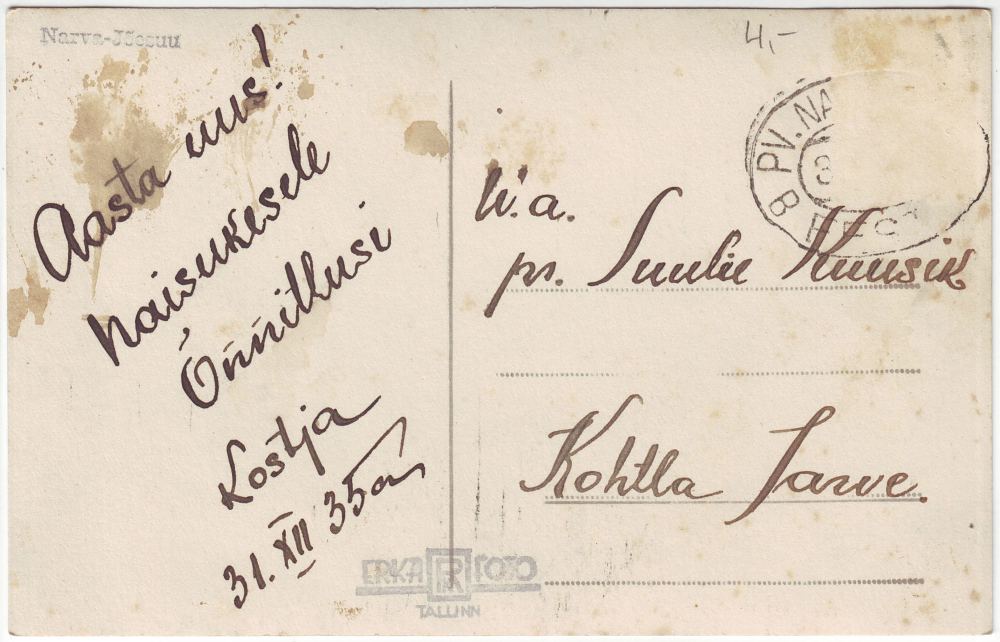 Narva-Jõesuu
Aasta uus!
Naisukesele
Õnnitlusi
Kostja
31. XII 35a
4,-
PV. NA
8
3
EEST
W.a.
pr. Kuusik
Kohtla Jarve.
ERKA FOTO
TALLINN